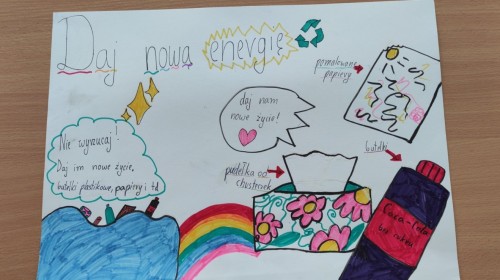 Daj nową energię
pomalowane
papiery
daj nam
nowe życie!
butelki
Nie wyrzucaj!
Daj im nowe życie,
butelki plastikowe, papiery i td
pudełka od
chusteczek
Coca-Cola
bez cukru